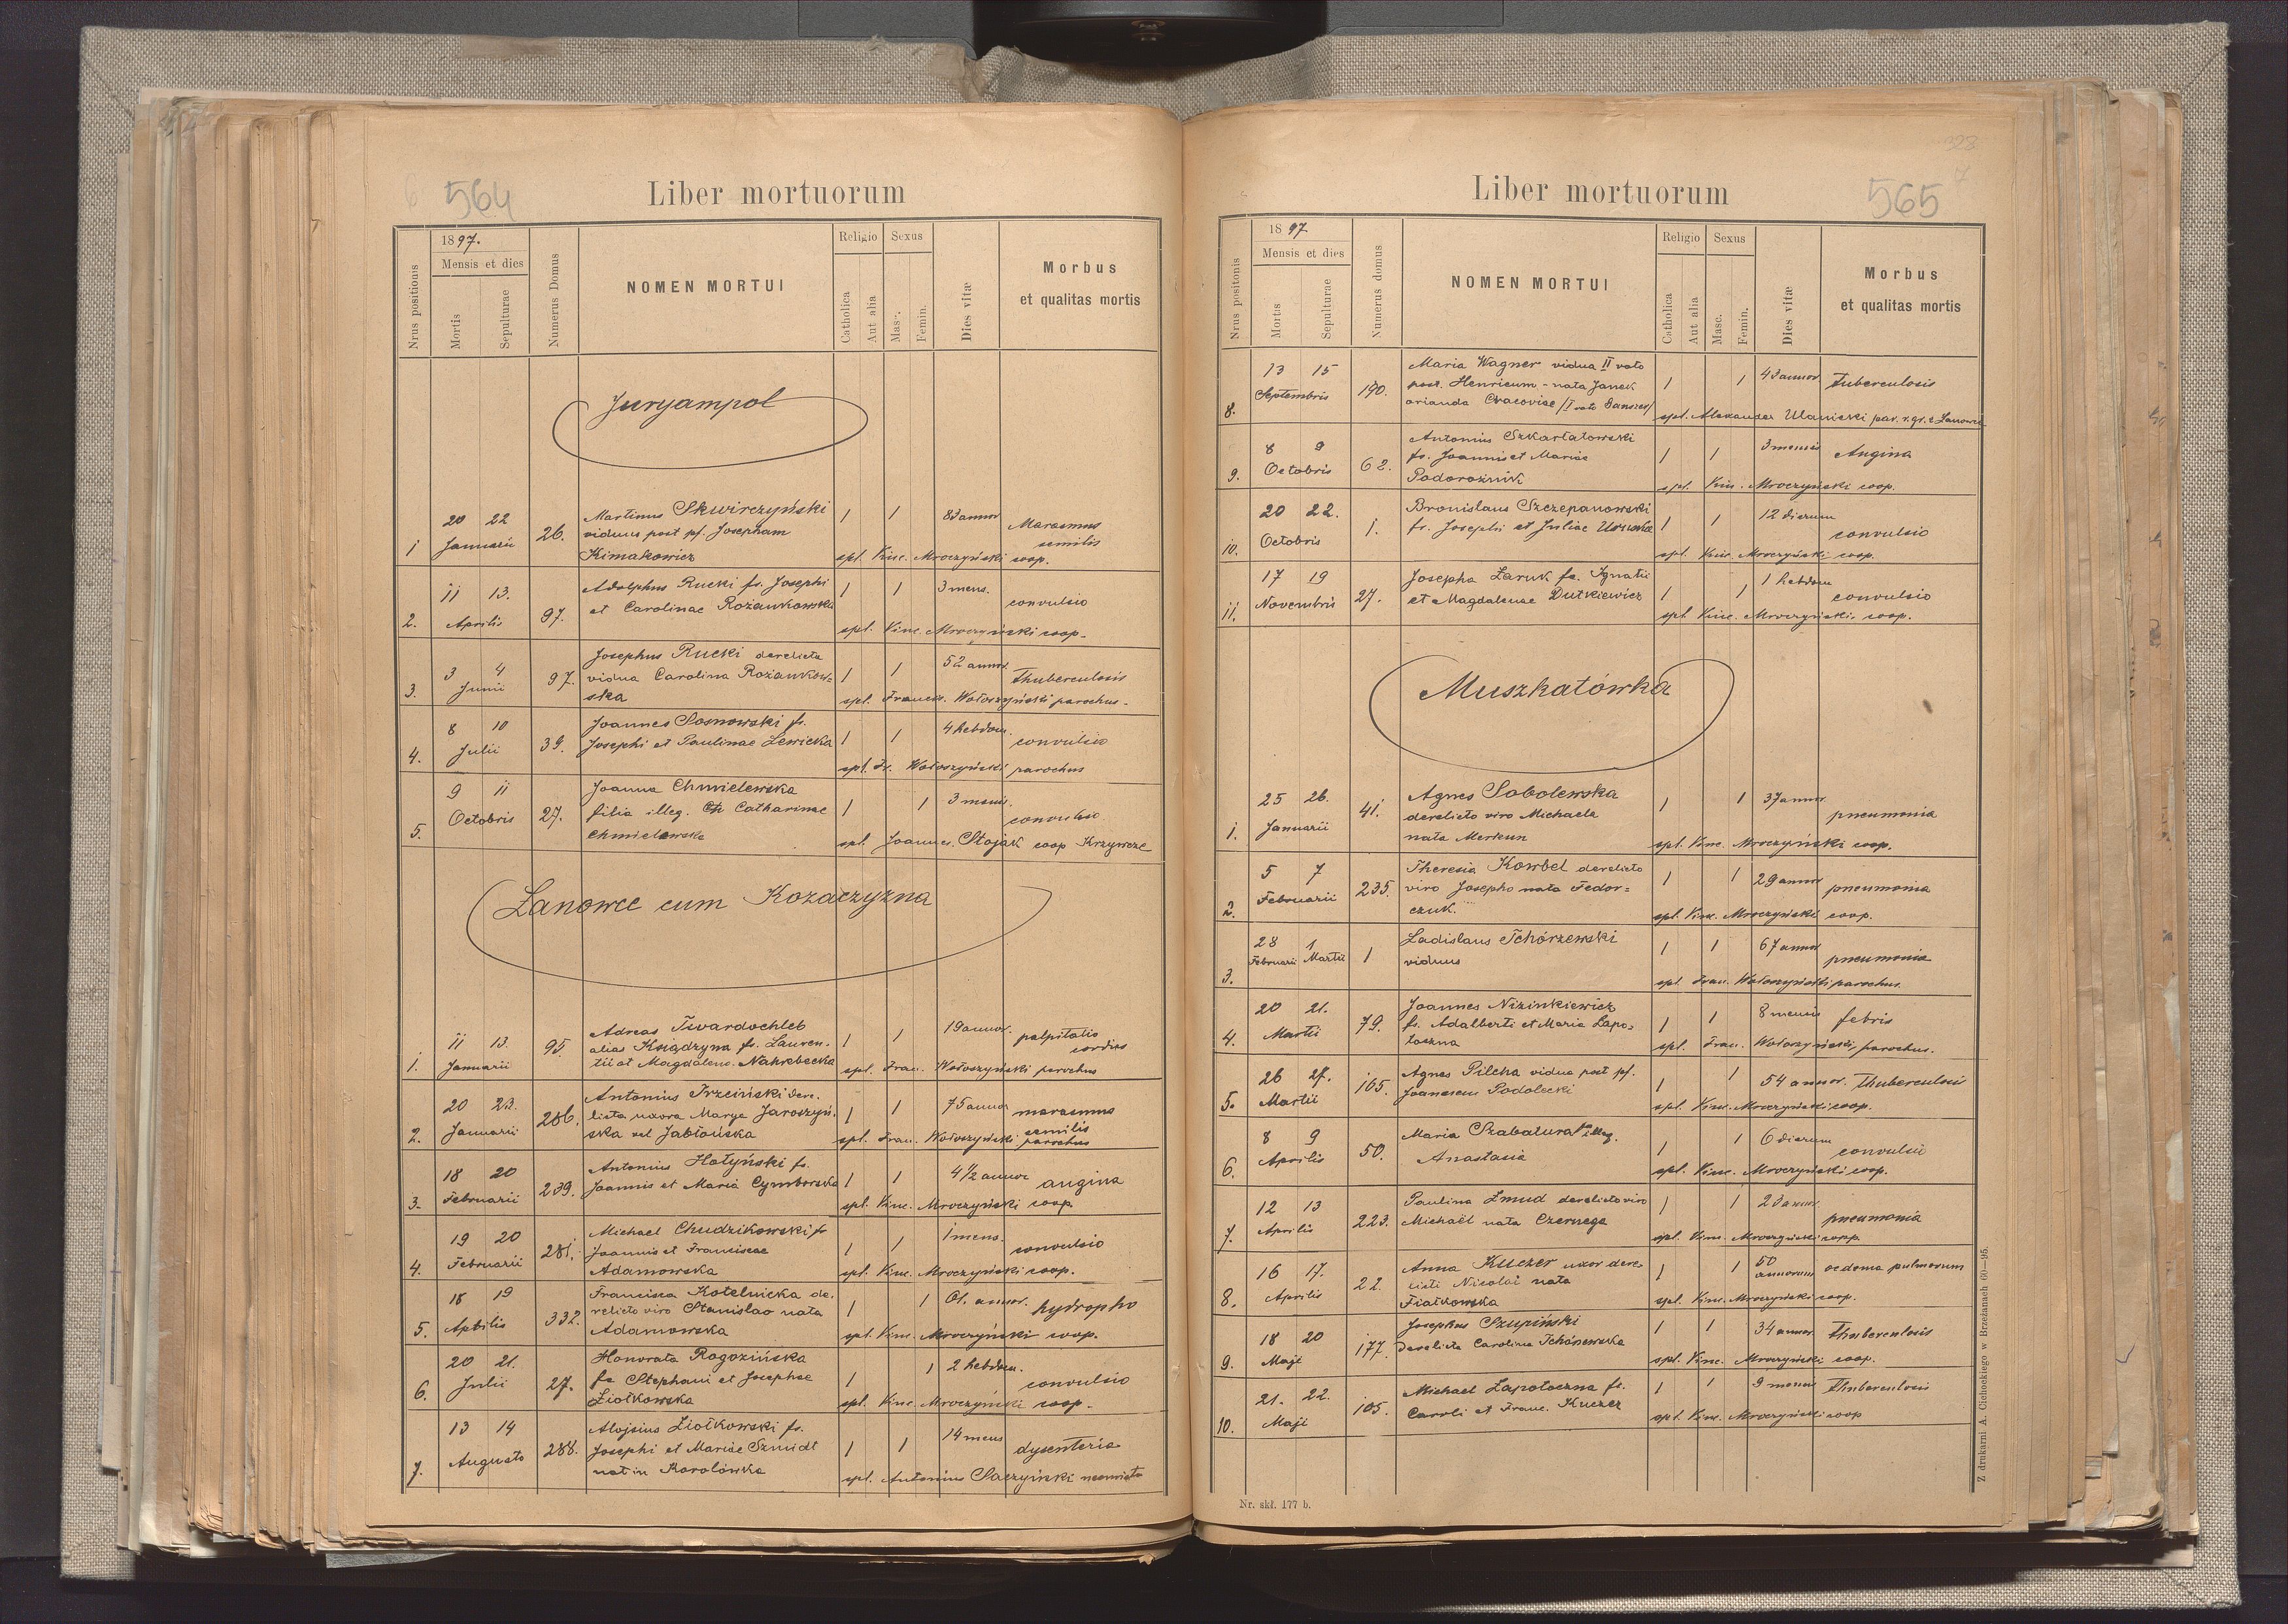 564
Liber mortuorum
1897.
Mensis et dies
Nrus positionis
Mortis
Sepulturae
Numerus Domus
NOMEN MORTUI
Religio
Sexus
Catholica
Aut alia
Masc.
Femin.
Dies vitæ
Morbus
et qualitas mortis
Juryampol
1
20 22
Januarii
26.
Martinus Skwirczyński
viduus post pf. Josepham
Kimakowicz
1 1
annor
Marasmus
senilis
spl. Vinc. Mroczyński coop.
2.
11 13.
Aprilis
97.
Adolphus Rucki fs. Josephi
et Carolinae Rożankowska
1 1
3 mens.
convulsio
spl. Vinc. Mroczyński coop.
3.
3 4
Junii
97.
Josephus Rucki derelicta
vidua Carolina Rożankow=
ska
1 1
52 annor.
Thuberculosis
spl. Francis. Wołoszyński parochus.
4.
8 10
Julii
39.
Joannes Sosnowski fs.
Josephi et Paulinae Lewicka
1 1
4 hebdom.
convulsio
spl. Fr. Wołoszyński parochus
5.
9 11
Octobris
27.
Joanna Chmielewska
filia illeg. Catharinae
Chmielewska
1 1
3 mens.
convulsio
spl. Joannes Stojak coop Krzywcze
Lanowce cum Kozaczyzna
1.
11 13.
Januarii
95.
Adreas Twardochleb
alias Książdzyna fs. Lauren-
tii et Magdalena Nahrebecka
1 1
19 annor.
palpitatio
cordis
spl. Fran. Wołoszyński parochus
2.
20 23.
Januarii
286.
Antonius Trzciński dere-
licta uxora Marya Jaroszyń-
ska vel Jabłońska
1 1
75 annor
marasmus
senilis
spl. Fran. Wołoszyński parochus
3.
18 20
Februarii
239.
Antonius Hołyński fs.
Joannis et Maria Cymborska
1 1
4 1/2 annor
angina
spl. Vinc. Mroczyński coop.
4.
19 20
Februarii
281.
Michael Chudzikowski fs
Joannis et Franciscae
Adamowska
1 1
1 mens.
convulsio
spl. Vinc. Mroczyński coop.
5.
18 19
Aprilis
332.
Francisca Kotelnicka de-
relicto viro Stanislao nata
Adamowska
1 1
annor.
hydropho
spl. Vinc. Mroczyński coop.
6.
20 21.
Julii
27.
Honorata Rogozińska
fa Stephani et Josephae
Ziołkowska
1 1
2 hebdom.
convulsio
spl. Vinc. Mroczyński coop.
7.
13 14
Augusto
288.
Alojsius Ziołkowski fs.
Josephi et Mariae Szmidt
nat in Karolówka
1 1
14 mens
dysenteria
spl. Antonius Saczyński
565
Liber mortuorum
1897
Mensis et dies
Nrus positonis
Mortis
Sepulturae
Numerus domus
NOMEN MORTUI
Religio
Sexus
Catholica
Aut alia
Masc.
Femin.
Dies vitæ
Morbus
et qualitas mortis
8.
13 15
Septembris
190.
Maria Wagner vidua II voto
post. Henricum - nata Janek
orianda Cracoviae
1 1
annor
Tuberculosis
spl. Alexander Ulanicki par. r. gr. e Lanowce
9.
8 9
Octobris
62.
Antonius Szkarłatowski
fs. Joannis et Mariae
Podorożnik
1 1
3 mensis
Angina
spl. Vinc. Mroczyński coop.
10.
20 22.
Octobris
1.
Bronislaus Szczepanowski
fs. Josephi et Juliae
1 1
12 dierum
convulsio
spl. Vinc. Mroczyński coop.
11.
17 19
Novembris
27.
Josepha Laruk fa. Ignatii
et Magdalenae Dutkiewicz
1 1
1 hebdom
convulsio
spl Vinc. Mroczyński. coop.
Muszkatówka
1.
25 26.
Januarii
41.
Agnes Sobolewska
derelicto viro Michaela
nata Merkun
1 1
37 annor.
pneumonia
spl. Vinc. Mroczyński coop.
2.
5 7
Februarii
235.
Theresia Kowbel derelicto
viro Josepho nata Fedor=
czuk.
1 1
29 annor
pneumonia
spl. Vinc. Mroczyński coop.
3.
28 1
Februarii Martii
1
Ladislaus Tchórzewski
viduus
1 1
67 annor
pneumonia
spl. Fran. Wołoszyński parochus.
4.
20 21.
Martii
79.
Joannes Nizinkiewicz
fs. Adalberti et Maria Lapo=
toczna
1 1
8 mensis
febris
spl. Fran. Wołoszyński, parochus.
5.
26 27.
Martii
165.
Agnes Pilcha vidua post pf.
Joannem Podolecki
1 1
54 annor.
Thuberculosis
spl. Vinc. Mroczyński coop.
6.
8 9
Aprilis
50.
Maria Szabatura fa illeg.
Anastasia
1 1
6 dierum
convulsii
spl. Vinc. Mroczyński coop.
7.
12 13
Aprilis
223.
Paulina Żmud derelicto viro
Michaël nata Czernega
1 1
annor.
pneumonia
spl. Vinc. Mroczyński coop.
8.
16 17.
Aprilis
22.
Anna Kuczer uxor dere-
licti Nicolai nata
Fiałkowska
1 1
50
annorum
oedema pulmorum
spl. Vinc. Mroczyński coop.
9.
18 20
Maji
177.
Josephus Szupiński
derelicta Carolina Tchórzewska
1 1
34 annor
Thuberculosis
spl. Vinc. Mroczyński coop.
10.
21. 22.
Maji
105.
Michael Lapotoczna fs.
Caroli et Franc. Kuczer
1 1
9 mensis
Thuberculosis
spl. Vinc. Mroczyński coop
Nr. skł. 177 b.
Z drukarni A. Cichockiego w Brzeżanach 60—95.